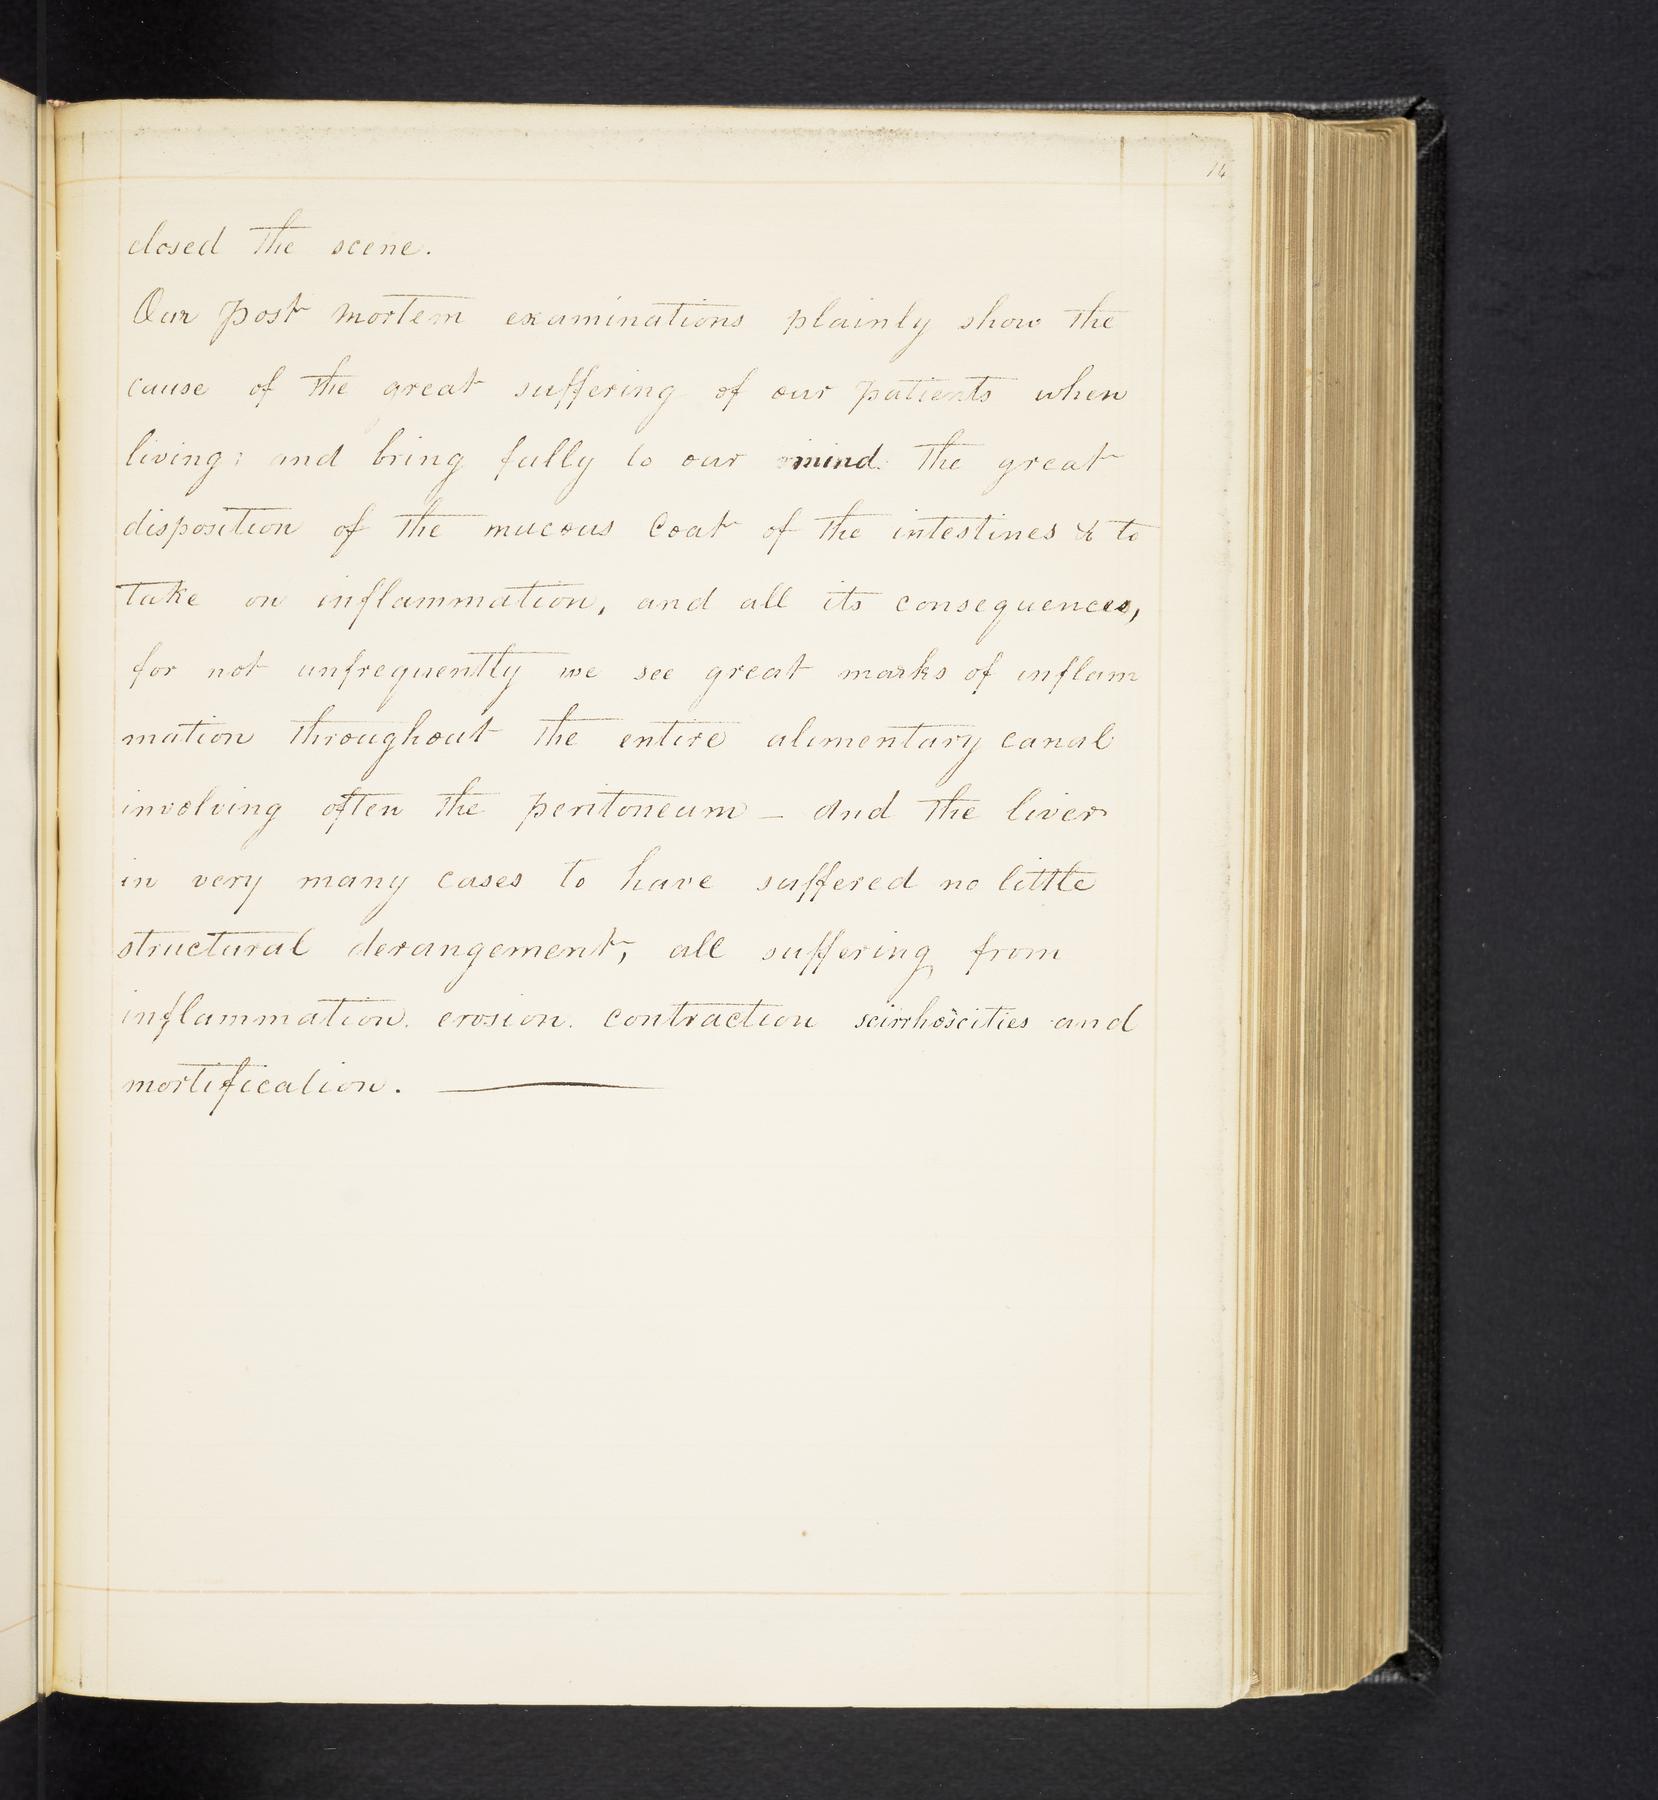 14
closed the scene.
Our post mortem examinations plainly show the
cause of the great suffering of our patients when
living; and bring fully to our mind. the great
disposition of the mucous Coat of the intestines & to
take on inflammation, and all its consequences,
for not unfrequently we see great marks of inflam
mation throughout the entire alimentary canal
involving often the peritoneum – and the liver
in very many cases to have suffered no little
structural derangement, all suffering from
inflammation. erosion. contraction scirrhoscities and
mortification. —